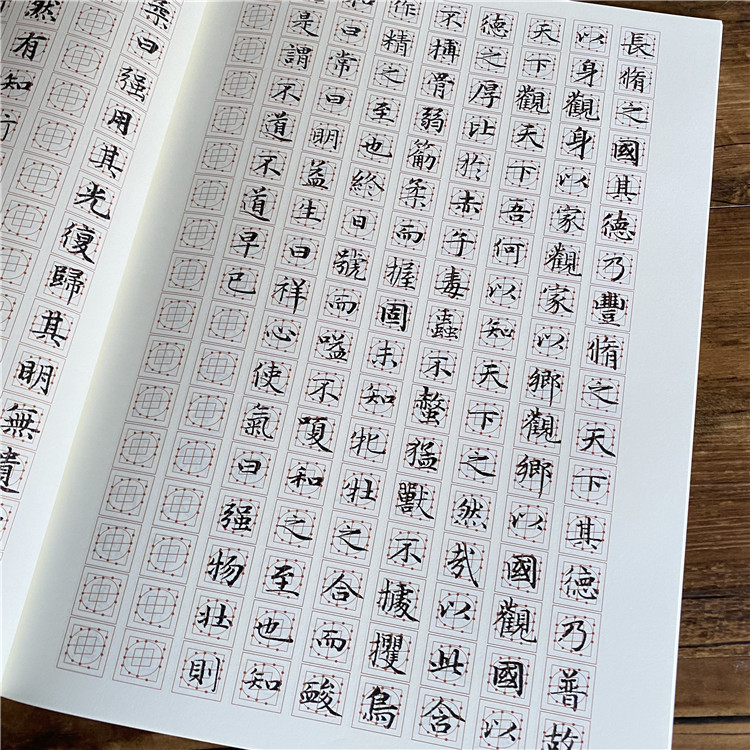 長脩之國其德乃豐脩之天下其德乃普故
以身觀身以家觀家以鄉觀鄉以國觀國以
天下觀天下吾何以知天下之然哉以此含
德之厚比於赤子毒蟲不螫猛獸不據攫鳥
不搏骨弱筋柔而握固未知牝牡之合而
作精之至也終日號而嗌不嗄和之至也知
和曰常曰明益生曰祥心使氣曰强物壯則
是謂不道不道早已
柔曰强用其光復歸其明無遺
然有知